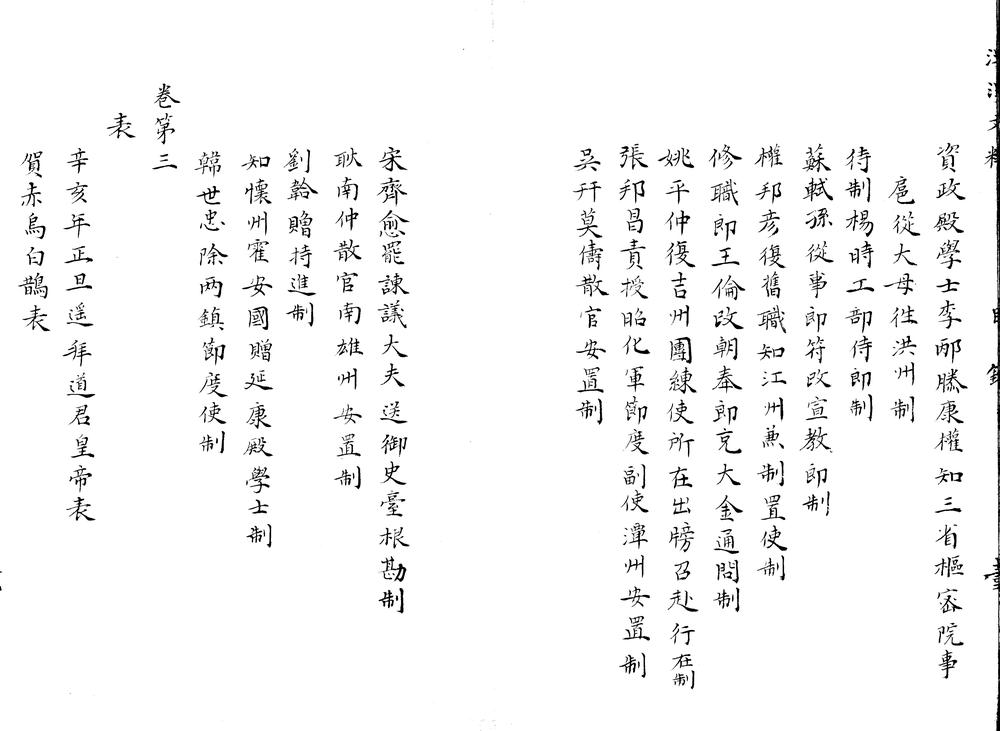 資政殿學士李邴滕康權知三省樞密院事
扈從大母徃洪州制
待制楊時工部侍郎制
蘇軾孫從事郎符改宣教郎制
權邦彦復舊職知江州兼制置使制
修職郎王倫改朝奉郎充大金通問制
姚平仲復吉州團練使所在出牓召赴行在制
張邦昌責授昭化軍節度副使潭州安置制
吳幵莫儔散官安置制
宋齊愈罷諫議大夫送御史臺根勘制
耿南仲散官南雄州安置制
劉韐贈特進制
知懷州霍安國贈延康殿學士制
韓世忠除两鎮節度使制
卷第三
表
辛亥年正旦遥拜道君皇帝表
賀赤烏白鵲表